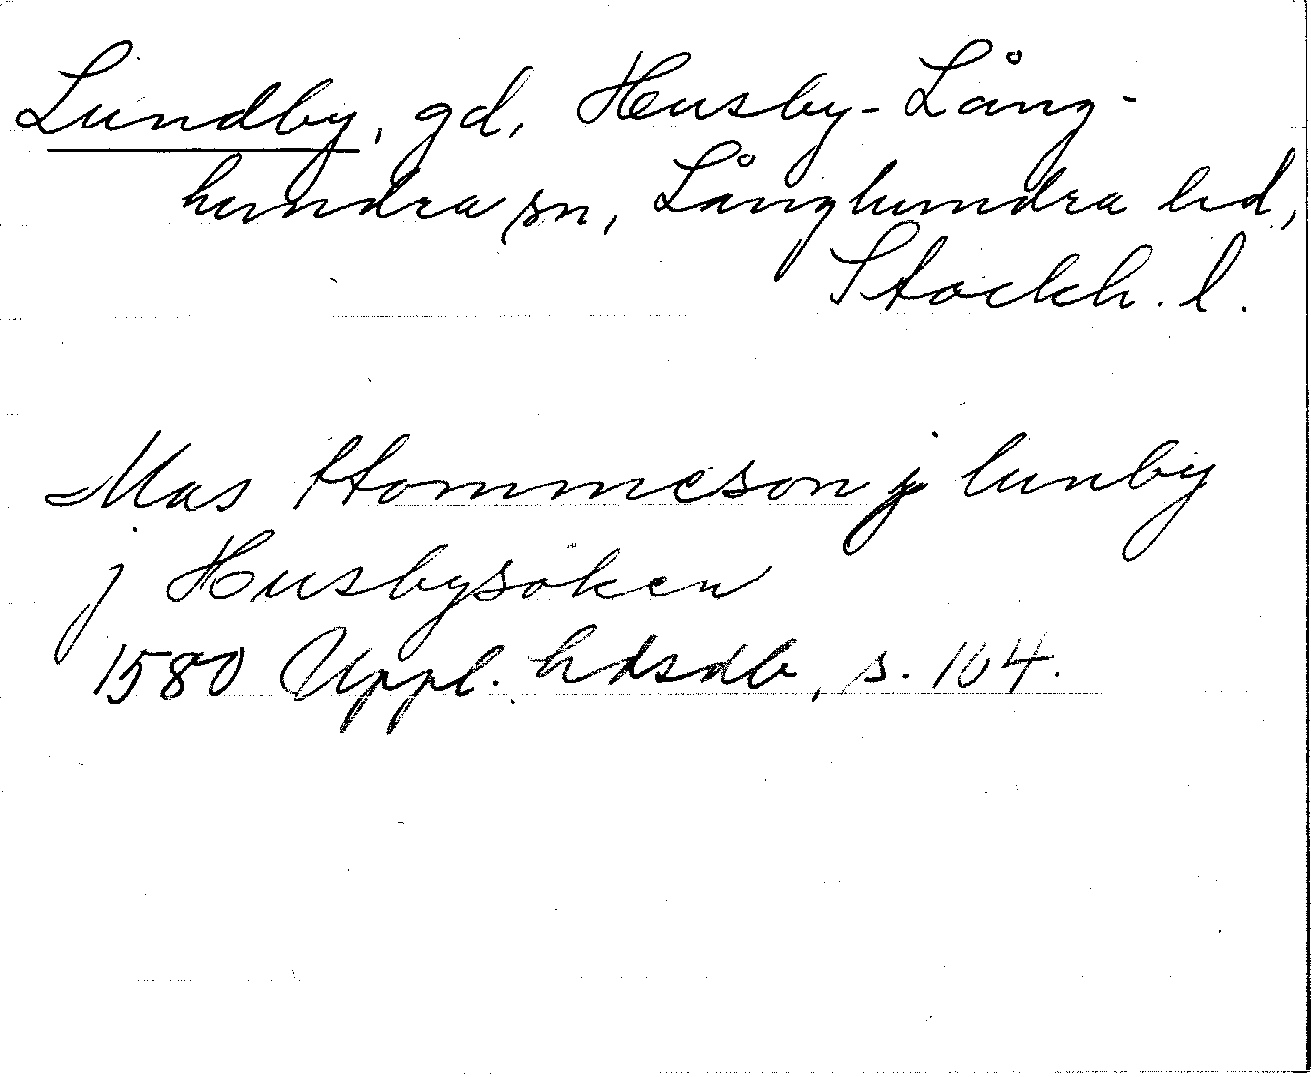 Lundby, gd, Husby-Lång-
hundra sn, Långhundra hd,
Stockh. l.
Mas Hommeson j lunby
j Husbysöken
1580 Uppl. hdsdb, s. 104.